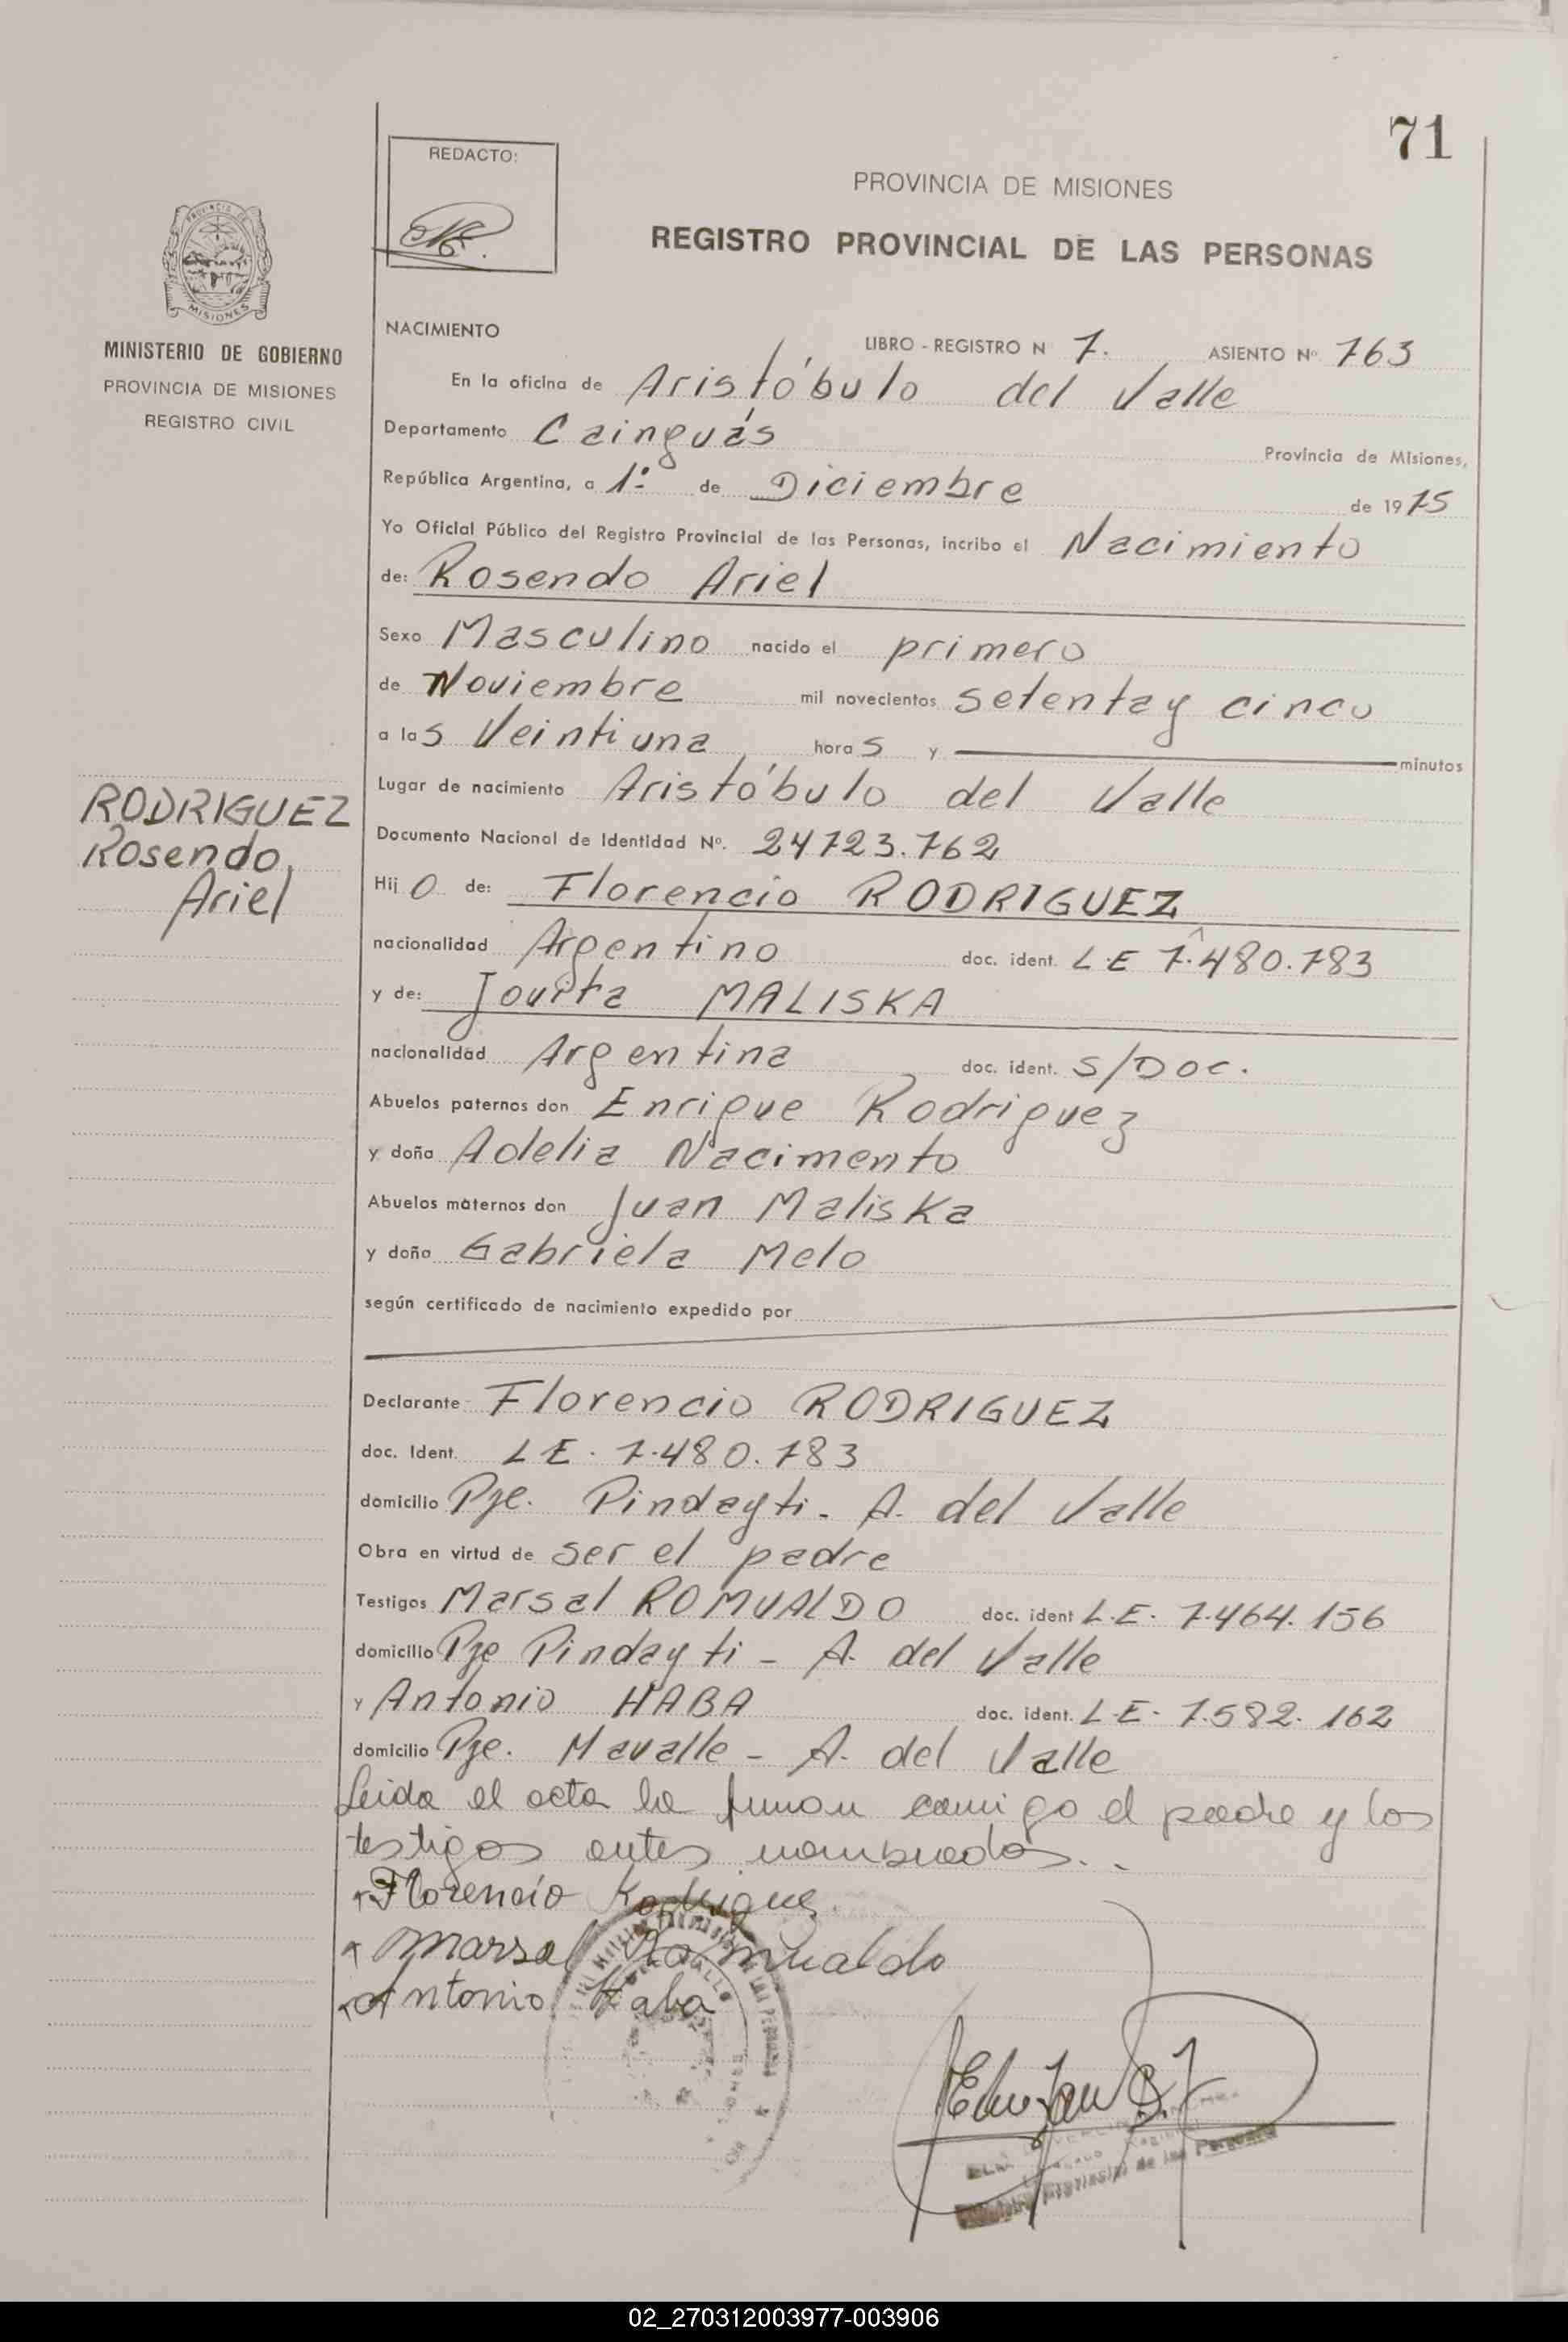 71
REDACTO:
PROVINCIA DE MISIONES
REGISTRO PROVINCIAL DE LAS PERSONAS
MISIONES
MINISTERIO DE GOBIERNO
PROVINCIA DE MISIONES
REGISTRO CIVIL
NACIMIENTO
LIBRO - REGISTRO N 7. ASIENTO Nº 763
En la oficina de Aristóbulo del Valle
Departamento Cainguás Provincia de Misiones,
República Argentina, a 1º de Diciembre de 1975
Yo Oficial Público del Registro Provincial de las Personas, incribo el Nacimiento
de: Rosendo Ariel
Sexo Masculino nacido el primero
de Noviembre mil novecientos setenta y cinco
a las Veintiuna horas y minutos
Lugar de nacimiento Aristóbulo del Valle
RODRIGUEZ
Rosendo,
Ariel
Documento Nacional de Identidad Nº. 24723.762
Hijo de: Florencio RODRIGUEZ
nacionalidad Argentino doc. ident. LE 7.480.783
y de: Jovita MALISKA
nacionalidad Argentina doc. ident. S/Doc.
Abuelos paternos don Enrique Rodriguez
y doña Adelia Nacimento
Abuelos maternos don Juan Maliska
y doña Gabriela Melo
según certificado de nacimiento expedido por
Declarante Florencio RODRIGUEZ
doc. Ident. LE. 7.480.783
domicilio Pje. Pindayti - A. del Valle
Obra en virtud de ser el padre
Testigos Marsal ROMUALDO doc. ident L.E. 7.464.156
domicilio Pje Pindayti - A. del Valle
y Antonio HABA doc. ident. L.E. 7.582.162
domicilio Pje. Mavalle - A. del Valle
Leida el acta la firman conmigo el padre y los
testigos antes nombrados.
Florencio Rodriguez
Marsal Romualdo
Antonio Haba
Provincial de las Personas
02_270312003977-003906